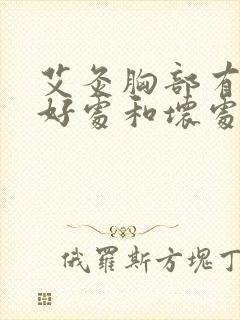 艾灸胸部有
好處和壞處
俄羅斯方塊丁